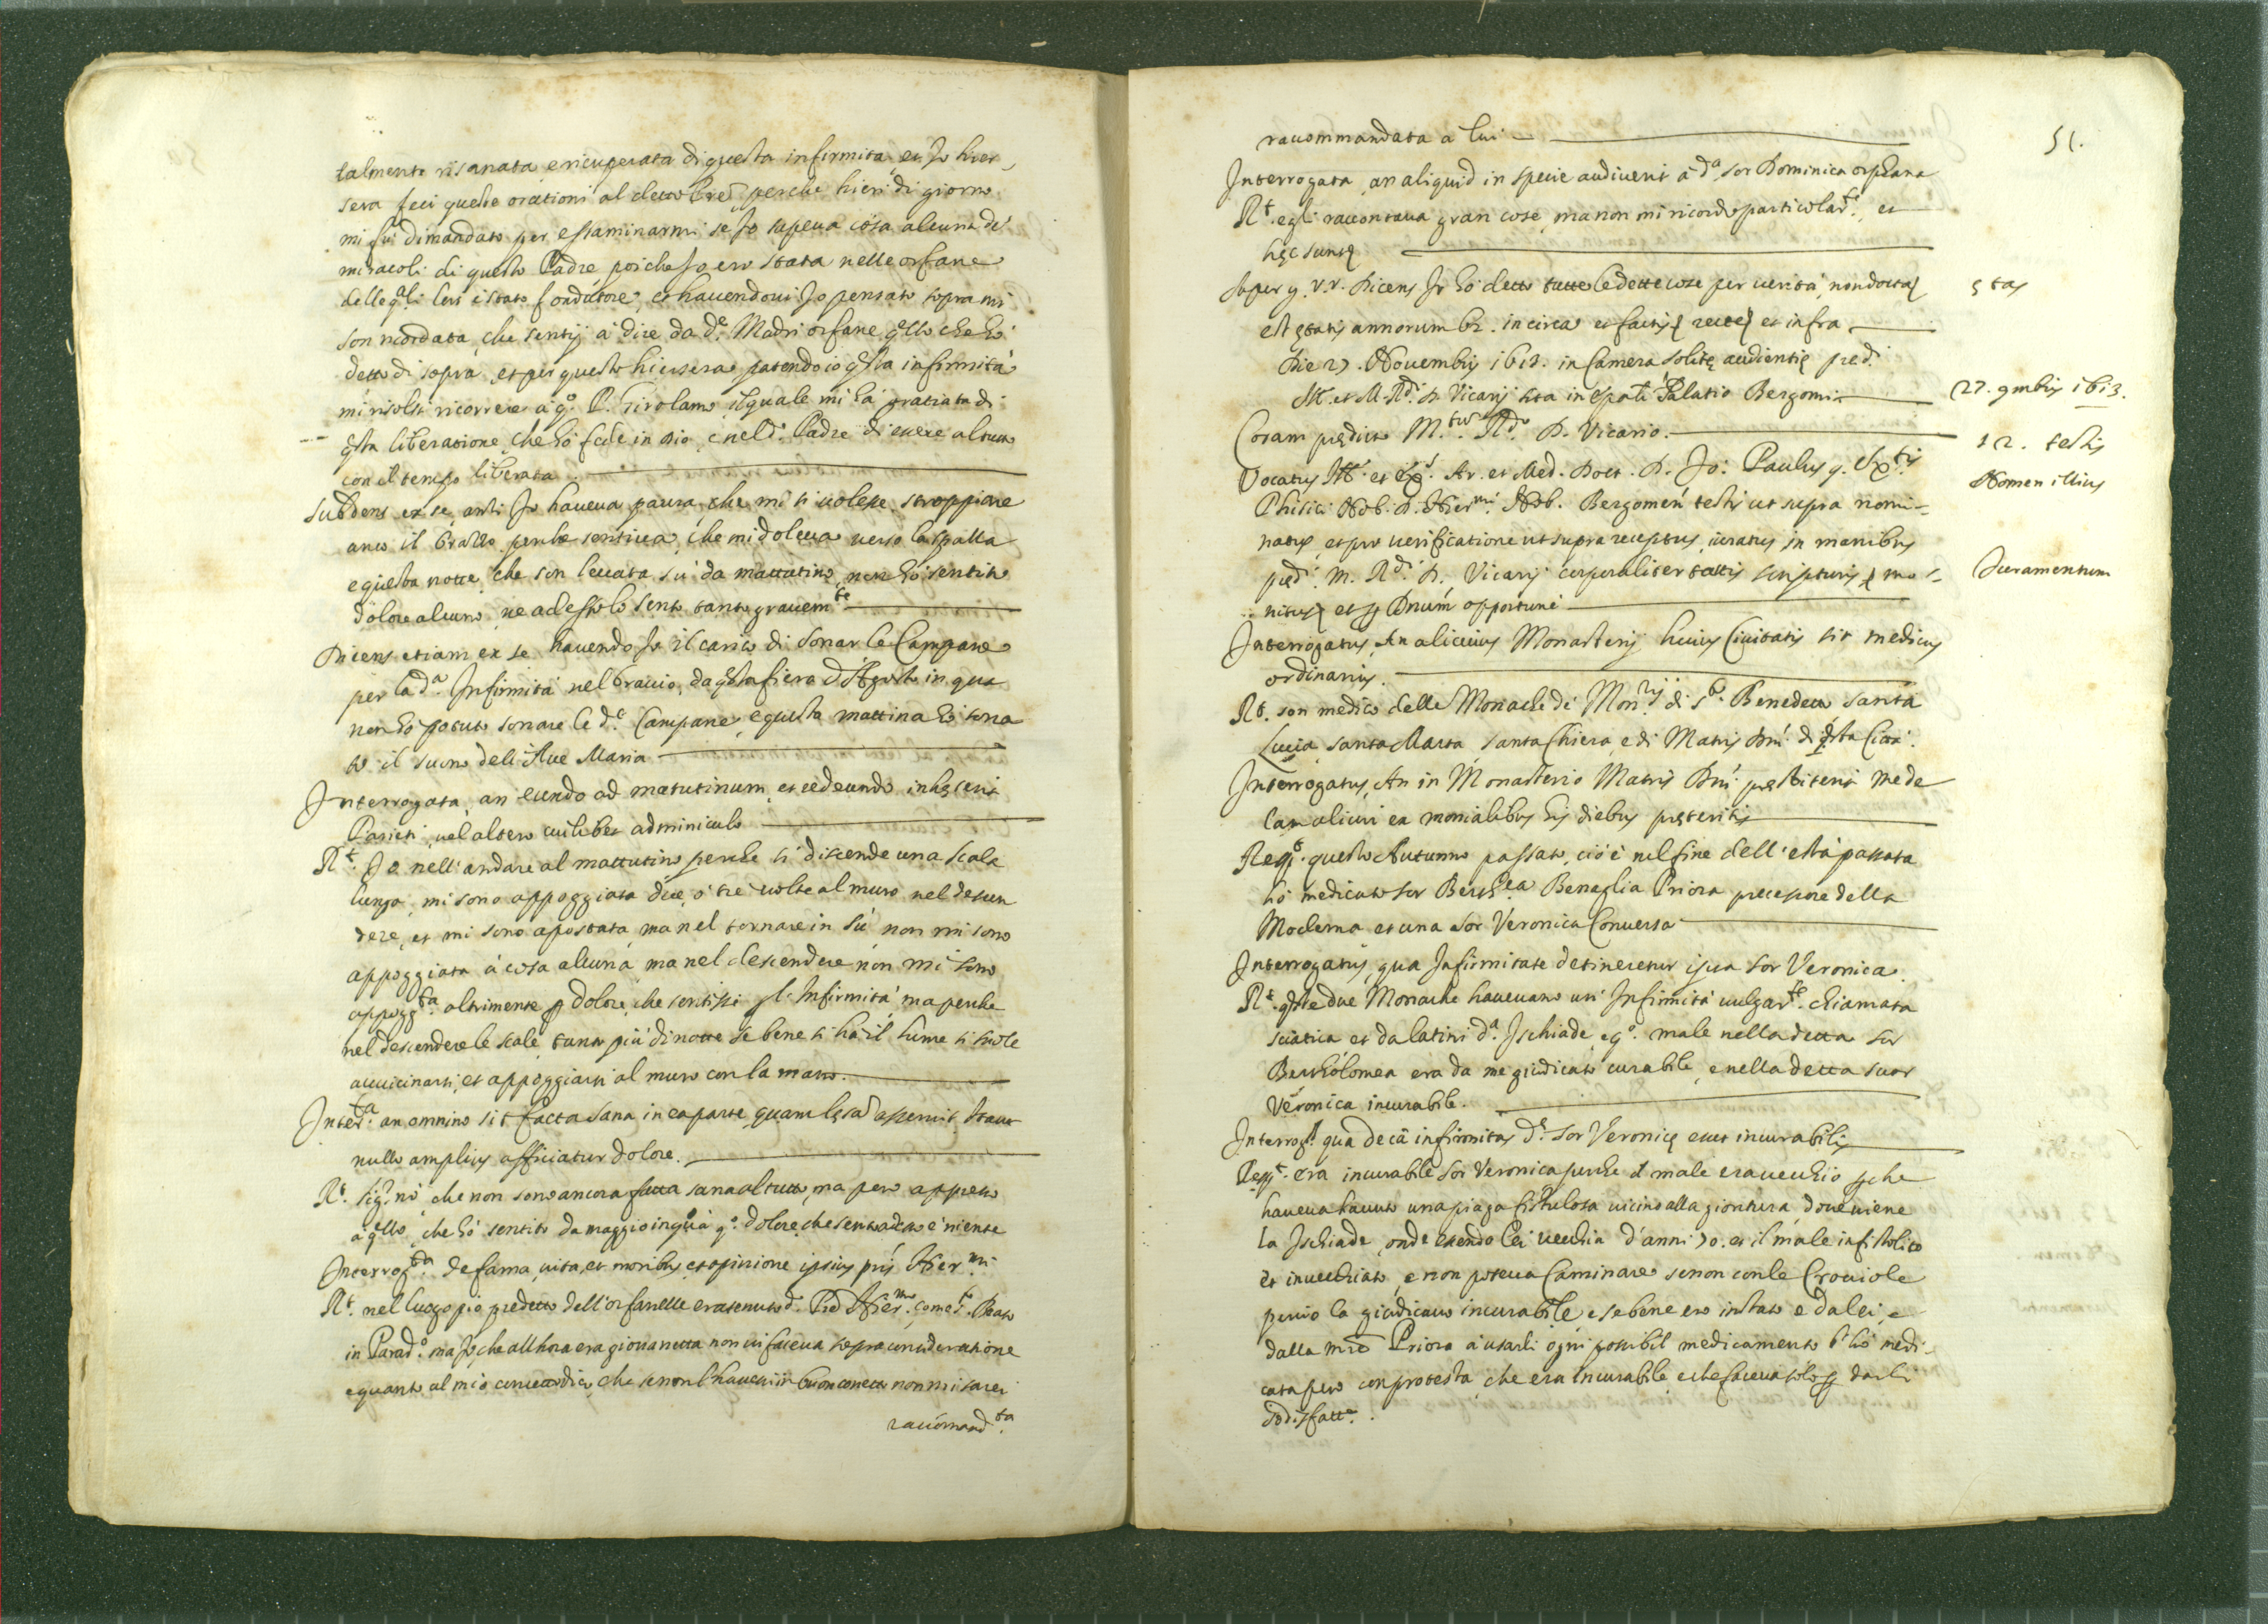 talmente risanata, e ricuperata di questa infirmità, et Io hier
sera feci queste orationi al detto Pre perche hieri di giorno
mi fu dimandato per essaminarmi se Io sapeua cosa alcuna de
miracoli di questo Padre poiche Io ero stata nelle orfane
delle qli lui è stato fondatore, et hauendoui Io pensato sopra mi
son ricordata, che sentij à dire da de. Madri orfane qllo che hò
detto di sopra, et per questo hiersera patendo io qsta infirmità
mi risolsi ricorrere à qo. P. Girolamo, il quale mi hà gratiata di
qsta liberatione, che hò fede in Dio, e nel do. Padre di essere al tutto
con il tempo liberata.
Subdens ex se, anti Io haueua paura, che mi si uolesse stroppiare
anco il brazzo perche sentiua, che mi doleua uerso la spalla
e questa notte, che son leuata sù da mattutino, non hò sentito
dolore alcuno, ne adesso lo sento tanto grauemte
Dicens etiam ex se hauendo Io il carico di sonar le Campane
per la da. Infirmità nel braccio, da qsta fiera d'Agosto in qua
non hò potuto sonare le de. Campane, e questa mattina hò sona
to il suono dell'Aue Maria
Interrogata, an eundo ad matutinum, et redeundo inhęserit
Parieti, uel altero cuilibet adminiculo
Rt. Io nell'andare al mattutino perche si discende una scala
lunga, mi sono appoggiata due, ò tre uolte al muro nel descen
dere, et mi sono apostata, ma nel tornare in sù non mi sono
appoggiata à cosa alcuna, ma nel descendere non mi sono
appoggta. altrimente p dolore, che sentissi pl'Infirmità, ma perche
nel descendere le scale, tanto più di notte se bene si hà il lume si suole
auuicinarsi, et appoggiarsi al muro con la mano.
Interta. an omnino sit facta sana in ea parte, quam lęsa asseruit, Itaut
nullo amplius afficiatur dolore.
Rt. sigr. nò che non sono ancora fatta sana al tutto, ma però appresso
a qllo, che hò sentito da maggio in quà qo. dolore, che sento adesso è niente
Interrogta. de fama, uita, et moribus, et opinione ipsius pris Hiermi
Rt. nel luogo pio predetto dell'orfanelle era tenuto do. Pre Hiermo. come so. Beato
in Parado. ma Io, che allhora era giouanetta non ui faceua sopra consideratione
e quanto al mio concetto dico, che se non l'hauessi in buon concetto non mi sarei
raccomandta.
raccommandata a lui
51.
Interrogata, an aliquid in specie audiuerit à da. sor Dominica orphana
Rt. egli raccontaua gran cose, ma non mi ricordo particolarte, et
hęc sunt
Super g. r. r. Dicens Io hò detto tutte le dette cose per uerità, non docta
est ętatis annorum 62. in circa et factis recte et infra
ętas
Die 27. Nouembris 1613. in Camera solitę audientię pred.
M. et M. Rdi. D. Vicarij sita in Epali Palatio Bergomi
27. gmbris 1613.
Coram prędicto M.to Rdo D. Vicario.
12. testis
Vocatus M. et Ex. Ar. et Med. Doct. D. Jo: Paulus q. Extis
Nomen illius
Phisici Nob. D. Hiermi. Nob. Bergomen testis ut supra nomi-
natus, et pro uerificatione ut supra receptus, iuratus in manibus
pędi. M. Rdi. D. Vicarij corporaliter tactis scripturis, mo-
Iuramentum
nitus et p Dnum opportune
Interrogatus, An alicuius Monasterij huius Ciuitatis sit medicus
ordinarius.
Rt. son medico delle Monache di Monrij di sto. Benedetto, Santa
Lucia, santa Marta, santa Chiara, e di Matris Dni. di qsta Città.
Interrogatus, An in Monasterio Matris Dni. pręstiterit mede
lam alicui ex monialibus his diebus pręteritis
Respt. questo Autunno passato, cioè nel fine dell'està passata
hò medicato sor Barthea Benaglia Priora precessore della
Moderna, et una sor Veronica Conuersa
Interrogatus, qua Infirmitate detineretur ipsa sor Veronica
Rt. qste due Monache haueuano un' Infirmità uulgarte. chiamata
sciatica et da latini da. Ischiade, e qo. male nella detta sor
Bartholomea era da me giudicato curabile, e nella detta suor
Veronica incurabile.
Interrogs. qua de cā infirmitas de. sor Veronicę esset incurabilis
Respt. era incurabile sor Veronica perche il male era uecchio pche
haueua hauuto una piaga fistulosa uicino alla giontura, doue uiene
la Ischiade, onde essendo lei uecchia d'anni 70. et il male infistolito
et inuecchiato, e non poteua caminare se non con le Crociole
perciò la giudicauo incurabile, e se bene ero instato e da lei, e
dalla mre Priora à usarli ogni possibil medicamento l'hò medi-
cata però con protesta, che era incurabile, e che faceua solo p darli
sodisfatte.